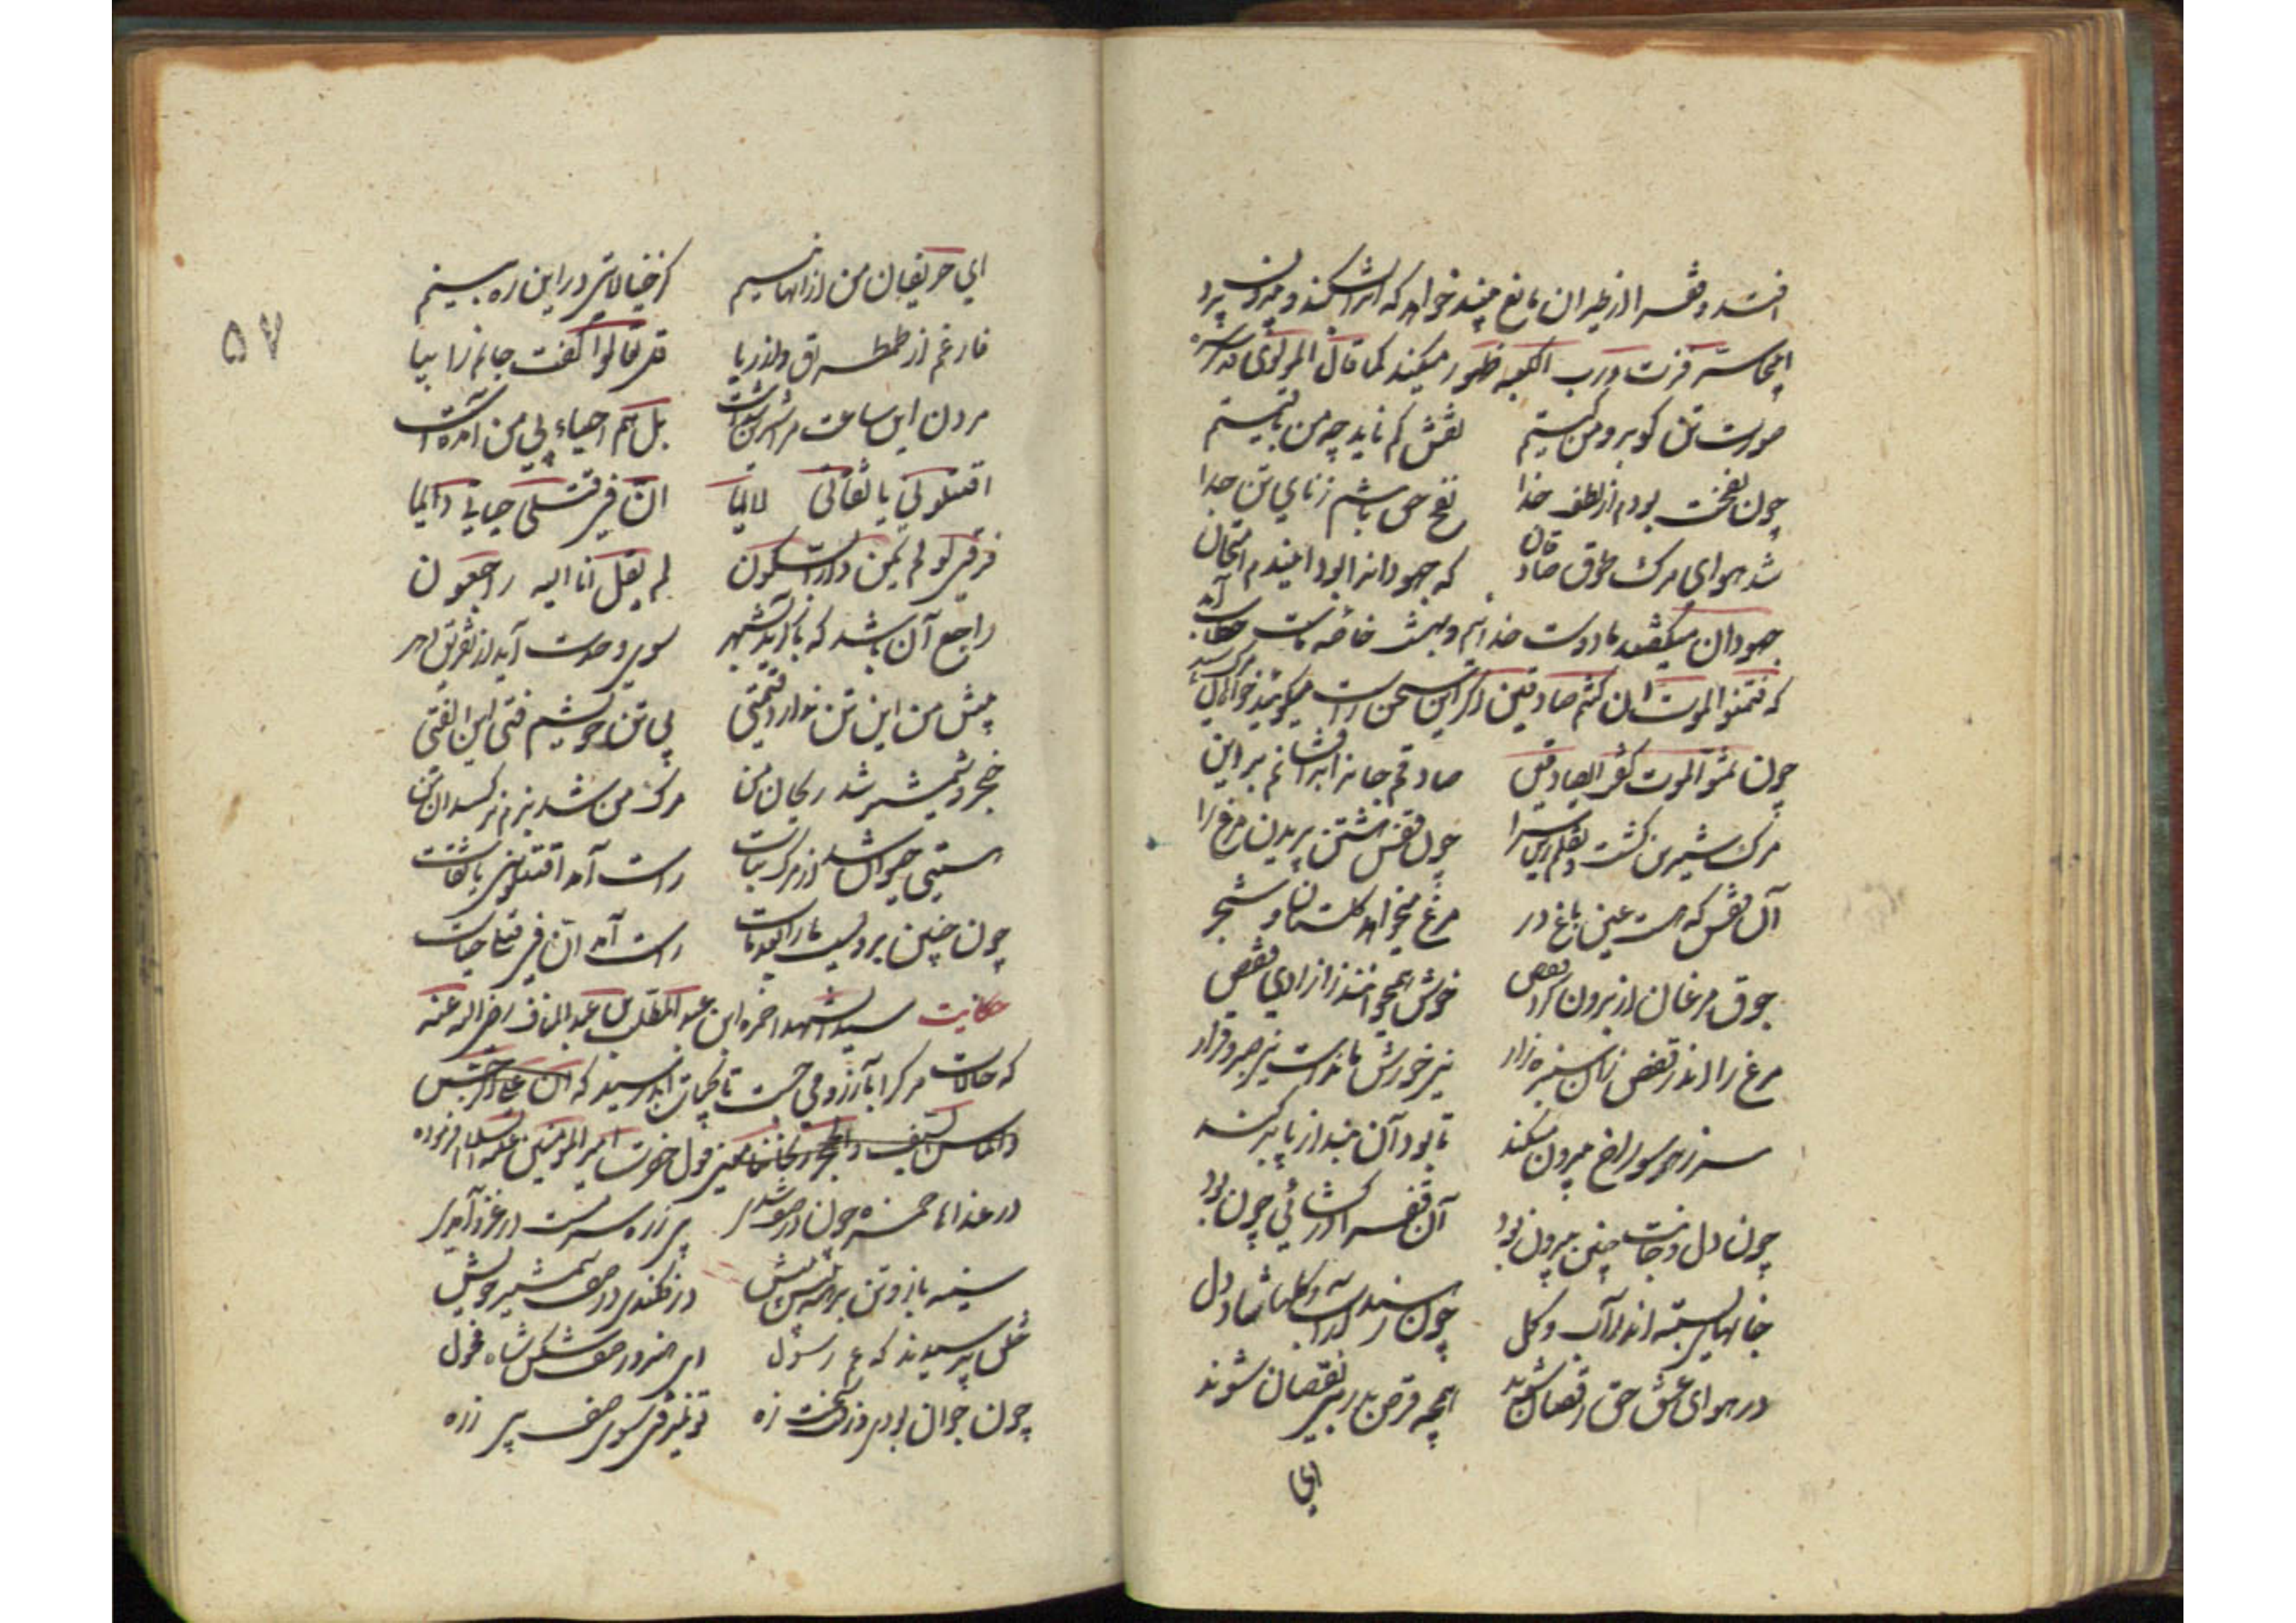 افتد و قفس او را از طیران مانع بیند خواهد که آنرا بشکند و بیرون پرد
اینجا سر فزت و رب الکعبه ظهور میکند کما قال المولوی قدس سره
صورت تن گو برو من کیستم نقش کم ناید چو من باقیستم
چون نفخت بودم از لطف خدا نفخ حق باشم ز نای تن جدا
شد هوای مرگ طوق صادقان که جهودانرا بود این دم امتحان
جهودان میگفتند ما دوست خدائیم و بهشت خاصه ماست خطاب آمد
که فتمنوا الموت ان کنتم صادقین اگر این سخن راست میگوئید خواهان مرگ شوید
چون تمنوا الموت گفت ای صادقین صادقم جانرا برافشانم بر این
مرگ شیرین گشت و نقلم زین سرا چون قفس هشتن پریدن مرغ را
آن قفس که هست عین باغ در مرغ میخواهد گلستان و شجر
جوق مرغان از برون گرد قفص خوش همیخوانند ز آزادی قصص
مرغ را اندر قفص زان سبزه زار نیز خورش مانده است نیز صبر و قرار
سر ز هر سوراخ بیرون میکند تا بود آن بند از پا برکند
چون دل و جانت چنین بیرون بود آن قفس را درگشائی چون بود
جانهای بسته اندر آب و گل چون رسند از آب و گلها شاد دل
در هوای عشق حق رقصان شوند همچو قرص بدر بی نقصان شوند
ای
ای حریفان من از آنها نیستم کز خیالاتی در این ره بیستم
فارغم از طمطراق و از ریا قل تعالوا گفت جانم را بیا
مردن این ساعت مرا شیرین شدست بل هم احیاء پی من آمده است
اقتلونی یا ثقاتی لائما ان فی قتلی حیاتی دائما
فرقتی لو لم یکن ذا السکون لم یقل انا الیه راجعون
راجع آن باشد که باز آید بشهر سوی وحدت آید از تفریق دهر
پیش من این تن ندارد قیمتی بی تن خویشم فتی ابن الفتی
خنجر و شمشیر شد ریحان من مرگ من شد بزم نرگسدان من
راست آمد اقتلونی یا ثقات
چون چنین بردیست ما را بعد مات راست آمد ان فی قتلی حیات
حکایت سید الشهدا حمزه ابن عبد المطلب بن عبد المناف رضی الله عنه
در غزا ما حمزه چون در صف شدی بی زره سرمست در غزو آمدی
سینه باز و تن برهنه پیش پیش در فکندی در صف شمشیر خویش
خلق پرسیدند که ای عم رسول ای هزبر صف شکن شاه فحول
چون جوان بودی و زفت و سخت زه تو نمیرفتی سوی صف بی زره
۵۷